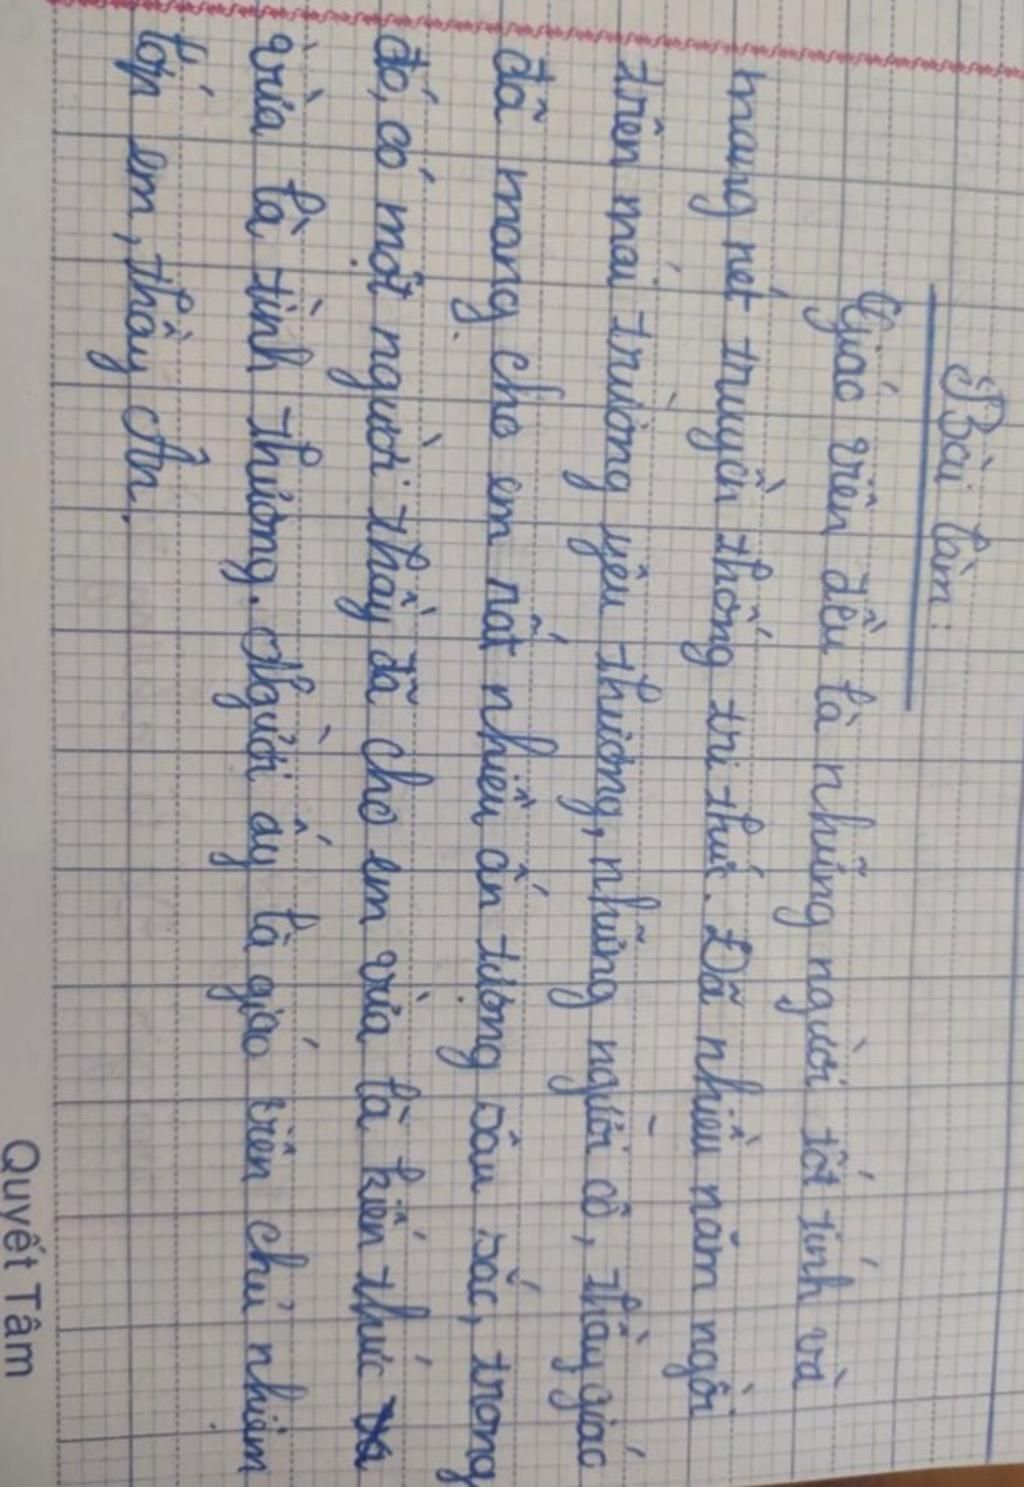 Bài làm:
Giáo viên đều là những người tốt tính và
mang nét truyền thống tri thức. Đã nhiều năm ngồi
trên mái trường yêu thương, những người cô, thầy giáo
đã mang cho em rất nhiều ấn tượng sâu sắc, trong
đó, có một người thầy đã cho em vừa là kiến thức và
vừa là tình thương. Người ấy là giáo viên chủ nhiệm
lớp em, thầy Ân.
Quyết Tâm